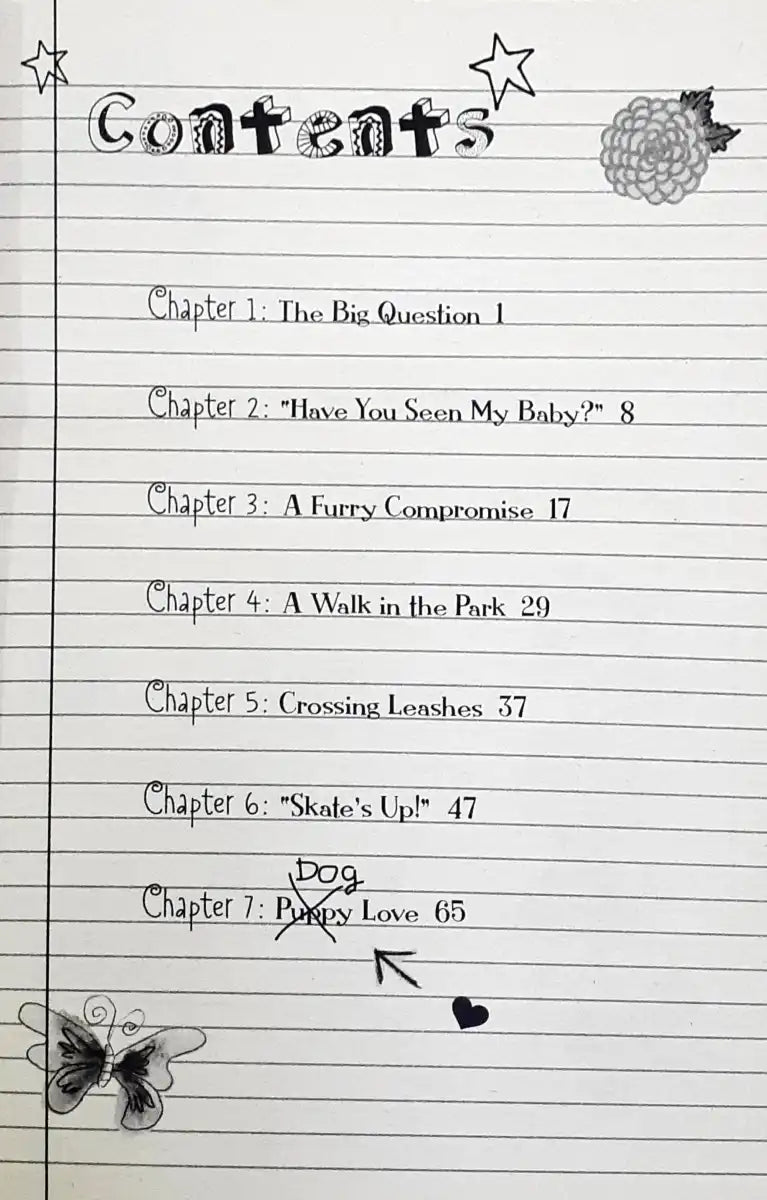 Contents
Chapter 1: The Big Question 1
Chapter 2: "Have You Seen My Baby?" 8
Chapter 3: A Furry Compromise 17
Chapter 4: A Walk in the Park 29
Chapter 5: Crossing Leashes 37
Chapter 6: "Skate's Up!" 47
Dog
Chapter 7: Puppy Love 65